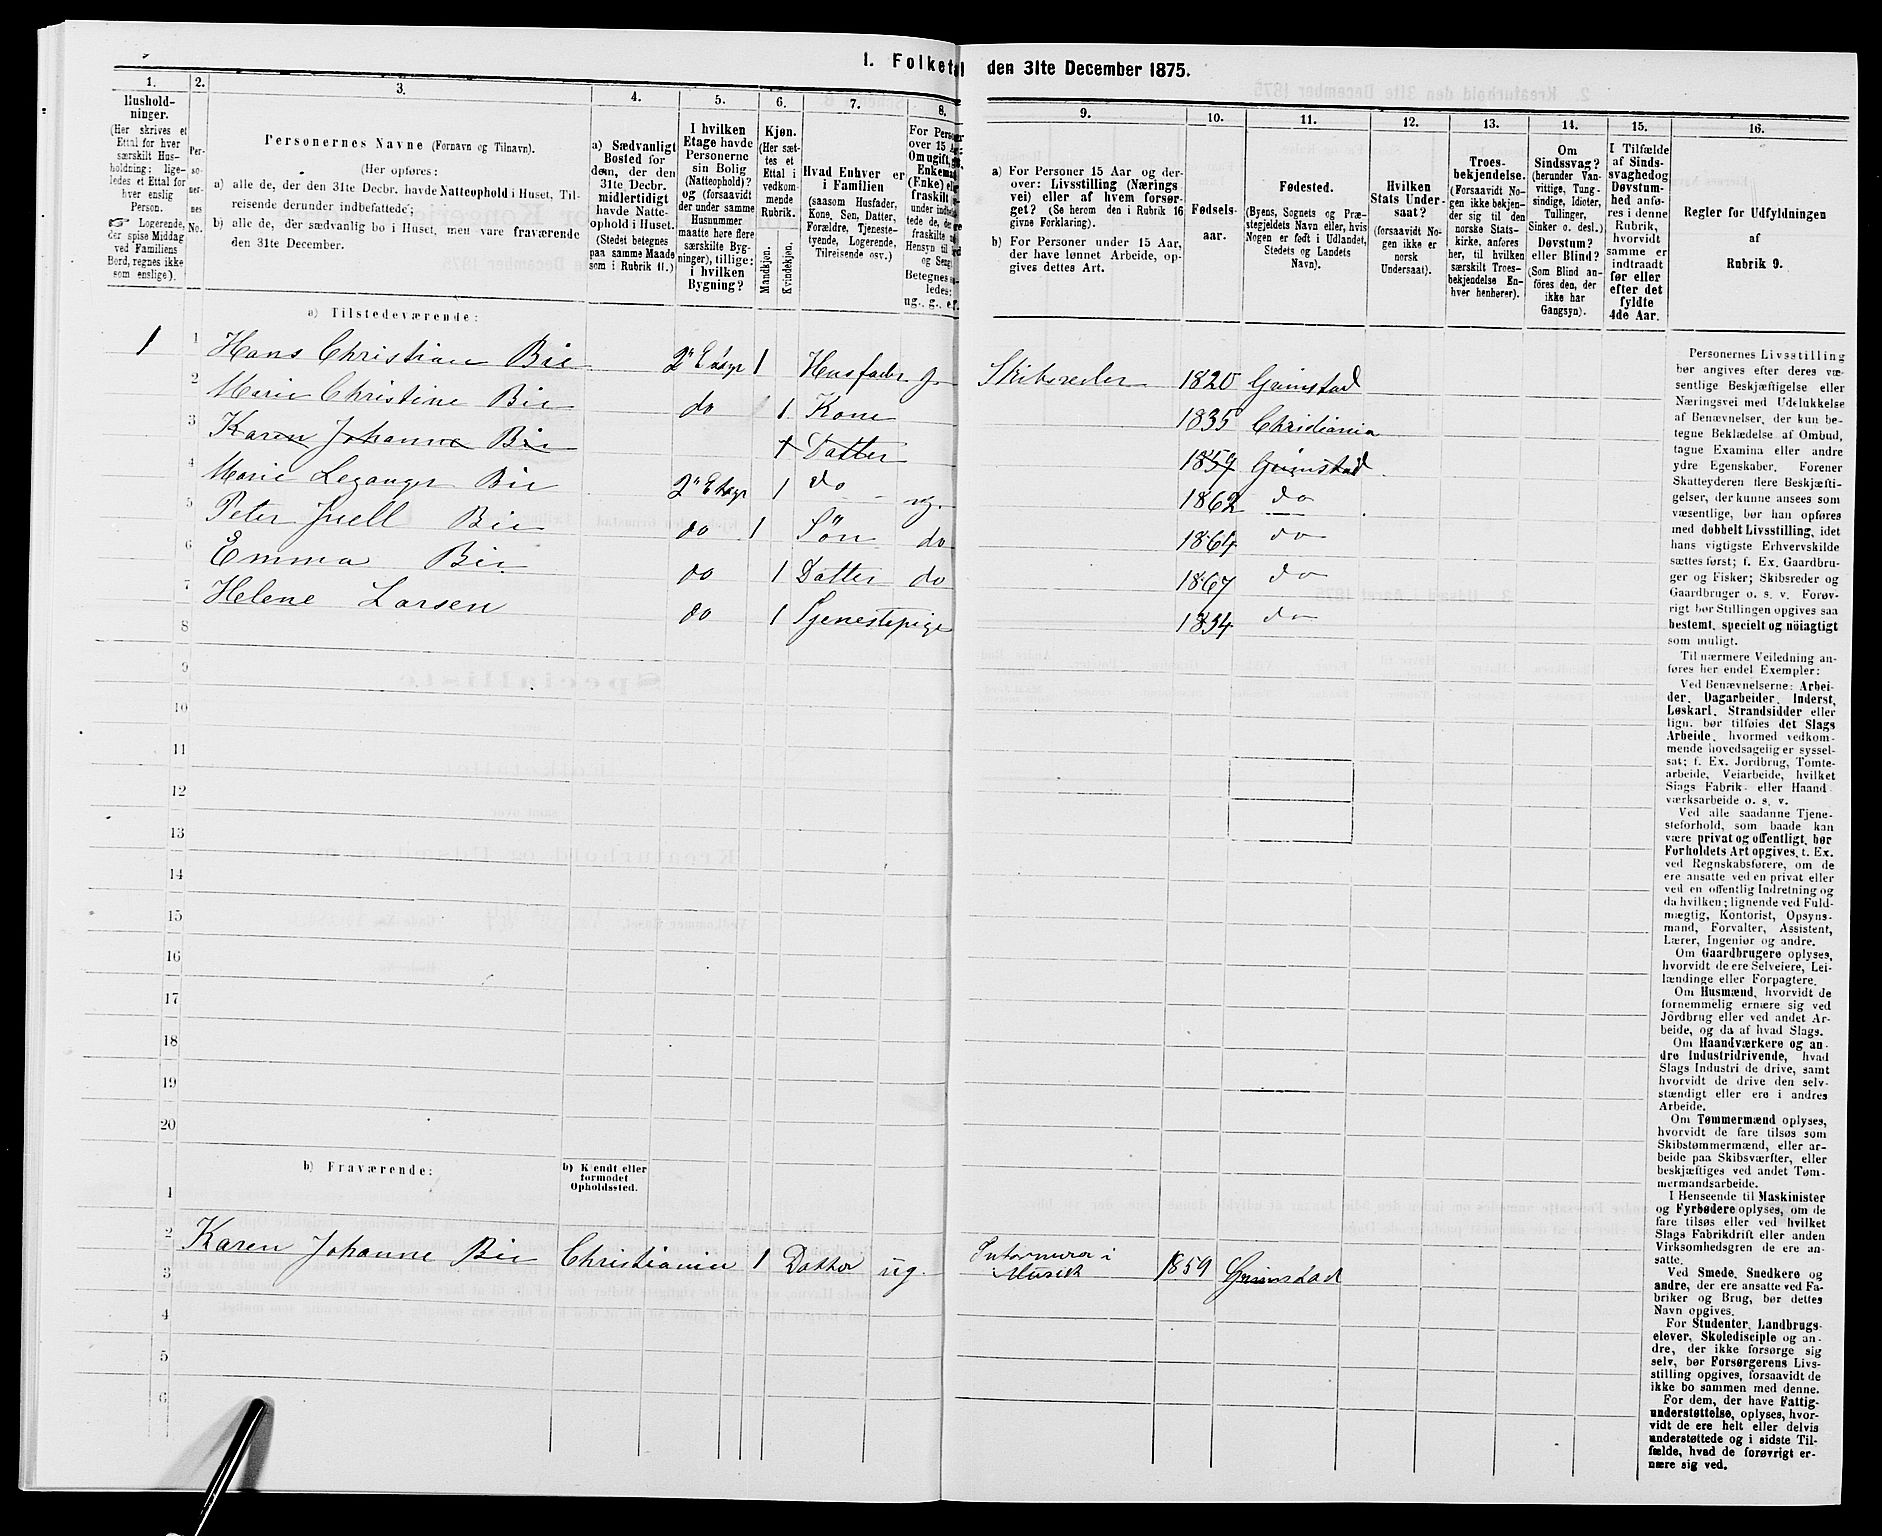 1. Folketal den 31te December 1875.
1.
Hushold-
ninger.
(Her skrives et
Ettal for hver
særskilt Hus-
holdning; lige-
ledes et Ettal for
hver enslig
Person.
☞ Logerende,
der spise Middag
ved Familiens
Bord, regnes ikke
som enslige).
2.
Per-
so-
ner-
nes
No.
3.
Personernes Navne (Fornavn og Tilnavn).
(Her opføres:
a) alle de, der den 31te Decbr. havde Natteophold i Huset, Til-
reisende derunder indbefattede;
b) alle de, der sædvanlig bo i Huset, men vare fraværende
den 31te December.
4.
a) Sædvanligt
Bosted for
dem, der den
31te Decbr.
midlertidigt
havde Natte-
ophold i Huset.
(Stedet betegnes
paa samme Maade
som i Rubrik 11.)
5.
I hvilken
Etage havde
Personerne
sin Bolig
(Natteophold)?
og (forsaavidt
der under samme
Husnummer
maatte høre flere
særskilte Byg-
ninger), tillige:
i hvilken
Bygning?
6.
Kjøn.
(Her sæt-
tes et
Ettal i
vedkom-
mende
Rubrik.
Mandkjøn.
Kvindekjøn.
7.
Hvad Enhver er
i Familien
(saasom Husfader,
Kone, Søn, Datter,
Forældre, Tjeneste-
tyende, Logerende,
Tilreisende osv.)
8.
For Personer
over 15 Aar:
Om ugift, gift,
Enkemand
(Enke) eller
fraskilt
ledes:
ug., g., e.f.
9.
a) For Personer 15 Aar og der-
over: Livsstilling (Nærings
vei) eller af hvem forsør-
get? (Se herom den i Rubrik 16
givne Forklaring).
b) For Personer under 15 Aar,
der have lønnet Arbeide, op-
gives dettes Art.
10.
Fødsels-
aar.
11.
Fødested.
(Byens, Sognets og Præ-
stegjeldets Navn eller, hvis
Nogen er født i Udlandet,
Stedets og Landets
Navn).
12.
Hvilken
Stats Under-
saat?
(forsaavidt No-
gen ikke er
norsk
Undersaat).
13.
Troes-
bekjendelse.
(Forsaavidt No-
gen ikke bekjen-
der sig til den
norske Stats-
kirke, anføres
her, til hvilken
særskilt Troes-
bekjendelse En-
hver henhører).
14.
Om
Sindssvag?
(herunder Van-
vittige, Tung-
sindige, Idioter,
Tullinger,
Sinker o. desl.)
Døvstum?
eller Blind?
(Som Blind an-
føres den, der
ikke har
Gangsyn).
15.
I Tilfælde
af Sinds-
svaghed og
Døvstum-
hed anfø-
res i denne
Rubrik,
hvorvidt
samme er
indtraadt
før eller
efter det
fyldte
4de Aar.
16.
Regler for Udfyldningen
af
Rubrik 9.
a) Tilstedeværende:
1 1 Hans Christian Bie 2n Etage 1 Husfader g Skibsreder 1820 Grimstad
2 Marie Christine Bie do 1 Kone 1835 Christiania
3 Karen Johanne Bie 1 Datter 1857 Grimstad
4 Marie Leganger Bie 2n Etage 1 do ug. 1862 do
5 Peter Juell Bie do 1 Søn do 1864 do
6 Emma Bie do 1 Datter do 1867 do
7 Helene Larsen do 1 Tjenestepige 1834 do
8
9
10
11
12
13
14
15
16
17
18
19
20
b) Fraværende:
b) Kjendt eller
formodet
Opholdssted.
1
2 Karen Johanne Bie Christiania 1 Datter ug. Informeres i
Musik 1859 Grimstad
3
4
5
6
Personernes Livsstilling
bør angives efter deres væ-
sentlige Beskjæftigelse eller
Næringsvei med Udelukkelse
af Benævnelser, der kun be-
tegne Beklædelse af Ombud,
tagne Examina eller andre
ydre Egenskaber. Forener
Skatteyderen flere Beskjæfti-
gelser, der kunne ansees som
væsentlige, bør han opføres
med dobbelt Livsstilling, idet
hans vigtigste Erhvervskilde
sættes først; f. Ex. Gaardbru-
ger og Fisker; Skibsreder og
Gaardbruger o. s. v. Forøv-
rigt bør Stillingen opgives saa
bestemt, specielt og nöiagtigt
som muligt.
Til nærmere Veiledning an-
føres her endel Exempler:
Ved Benævnelserne: Arbei-
der, Dagarbeider, Inderst,
Løskarl, Strandsidder eller
lign. bør tilføies det Slags
Arbeide, hvormed vedkom-
mende hovedsagelig er syssel-
sat; f. Ex. Jordbrug, Tomte-
arbeide, Veiarbeide, hvilket
Slags Fabrik- eller Haand
værksarbeide o. s. v.
Ved alle saadanne Tjene-
steforhold, som baade kan
være privat og offentligt, bør
Forholdets Art opgives, t. Ex.
ved Regnskabsførere, om de
ere ansatte ved en privat eller
ved en offentlig Indretning og
da hvilken; lignende ved Fuld-
mægtig, Kontorist, Opsyns-
mand, Forvalter, Assistent,
Lærer, Ingeniør og andre.
Om Gaardbrugere oplyses,
hvorvidt de ere Selveiere, Lei-
lændinge eller Forpagtere.
Om Husmænd, hvorvidt de
fornemmelig ernære sig ved
Jördbrug eller ved andet Ar-
beide, og da af hvad Slags.
Om Haandværkere og an-
dre Industridrivende, hvad
Slags Industri de drive, samt
hvorvidt de drive den selv-
stændigt eller ere i andres
Arbeide.
Om Tømmermænd oplyses,
hvorvidt de fare tilsøs som
Skibstømmermænd, eller ar-
beide paa Skibsværfter, eller
beskjæftiges ved andet Tøm-
mermandsarbeide.
I Henseende til Maskinister
og Fyrbødere oplyses, om de
fare tilsøs eller ved hvilket
Slags Fabrikdrift eller anden
Virksomhedsgren de ere an-
satte.
Ved Smede, Snedkere og
andre, der ere ansatte ved Fa-
briker og Brug, bør dettes
Navn opgives.
For Studenter, Landbrugs-
elever, Skoledisciple og an-
dre, der ikke forsørge sig
selv, bør Forsørgerens Livs-
stilling opgives, forsaavidt de
ikke bo sammen med denne.
For dem, der have Fattig-
understøttelse, oplyses, hvor-
vidt de ere helt eller delvis
understøttede og i sidste Til-
fælde, hvad de forøvrigt er-
nære sig ved.